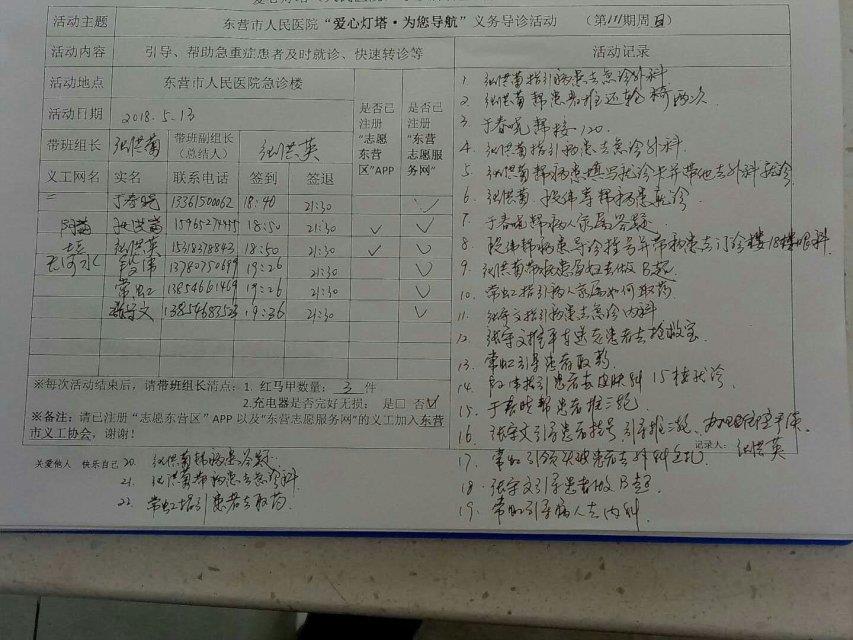 活动主题 东营市人民医院“爱心灯塔·为您导航”义务导诊活动 （第111期周日）
活动内容 引导、帮助急重症患者及时就诊、快速转诊等 活动记录
活动地点 东营市人民医院急诊楼
活动日期 2018.5.13
是否已注册“志愿东营区”APP
是否已注册“东营志愿服务网”
带班组长 张洪菊 带班副组长（总结人） 张洪英
义工网名 实名 联系电话 签到 签退
于春晓 13361500062 18:40 21:30 ✓
阿菊 张洪菊 15965274415 18:50 21:30 ✓ ✓
张洪英 15318378843 18:50 21:30 ✓ ✓
段伟 13780750699 19:26 21:30 ✓
常虹 13854661469 19:26 21:30 ✓
张守文 13854683523 19:36 21:30 ✓
※每次活动结束后，请带班组长清点：1. 红马甲数量：3 件
2.充电器是否完好无损： 是□ 否☑
※备注：请已注册“志愿东营区”APP 以及“东营志愿服务网”的义工加入东营
市义工协会，谢谢！
1. 张洪菊指引病患去急诊外科
2. 张洪菊帮患者推还轮椅两次
3. 于春晓帮接120.
4. 张洪菊指引病患去急诊外科.
5. 张洪菊帮病患填写就诊卡并带他去外科就诊
6. 张洪菊、段伟帮病患就诊
7. 于春晓帮病人家属答疑
8. 段伟帮病患导诊挂号并带病患去门诊楼18楼眼科.
9. 张洪菊带病患去做B超
10. 常虹指引病人家属如何取药
11. 张守文指引病患去急诊内科
12. 张守文推平车送患者去抢救室
13. 常虹引导患者取药
14. 指引患者去皮肤科15楼就诊
15. 于春晓帮患者推三轮
16. 张守文引导患者挂号
记录人：张洪英
17. 常虹引领
18. 张守文引导患者做B超
19. 常虹引导病人去内科
关爱他人 快乐自己
20. 张洪菊帮病患答疑.
21. 张洪菊带病患去急诊外科
22. 常虹指引患者去取药.